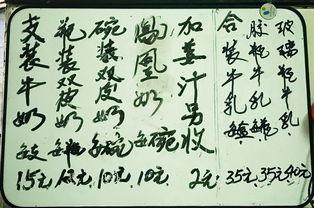 支装牛奶 每支 15元
瓶装双皮奶
碗装双皮奶 每碗 10元
鳳凰奶 每碗 10元
加姜汁另收 2元
合装牛乳 35元
胶瓶牛乳 35元
玻璃瓶牛乳 40元